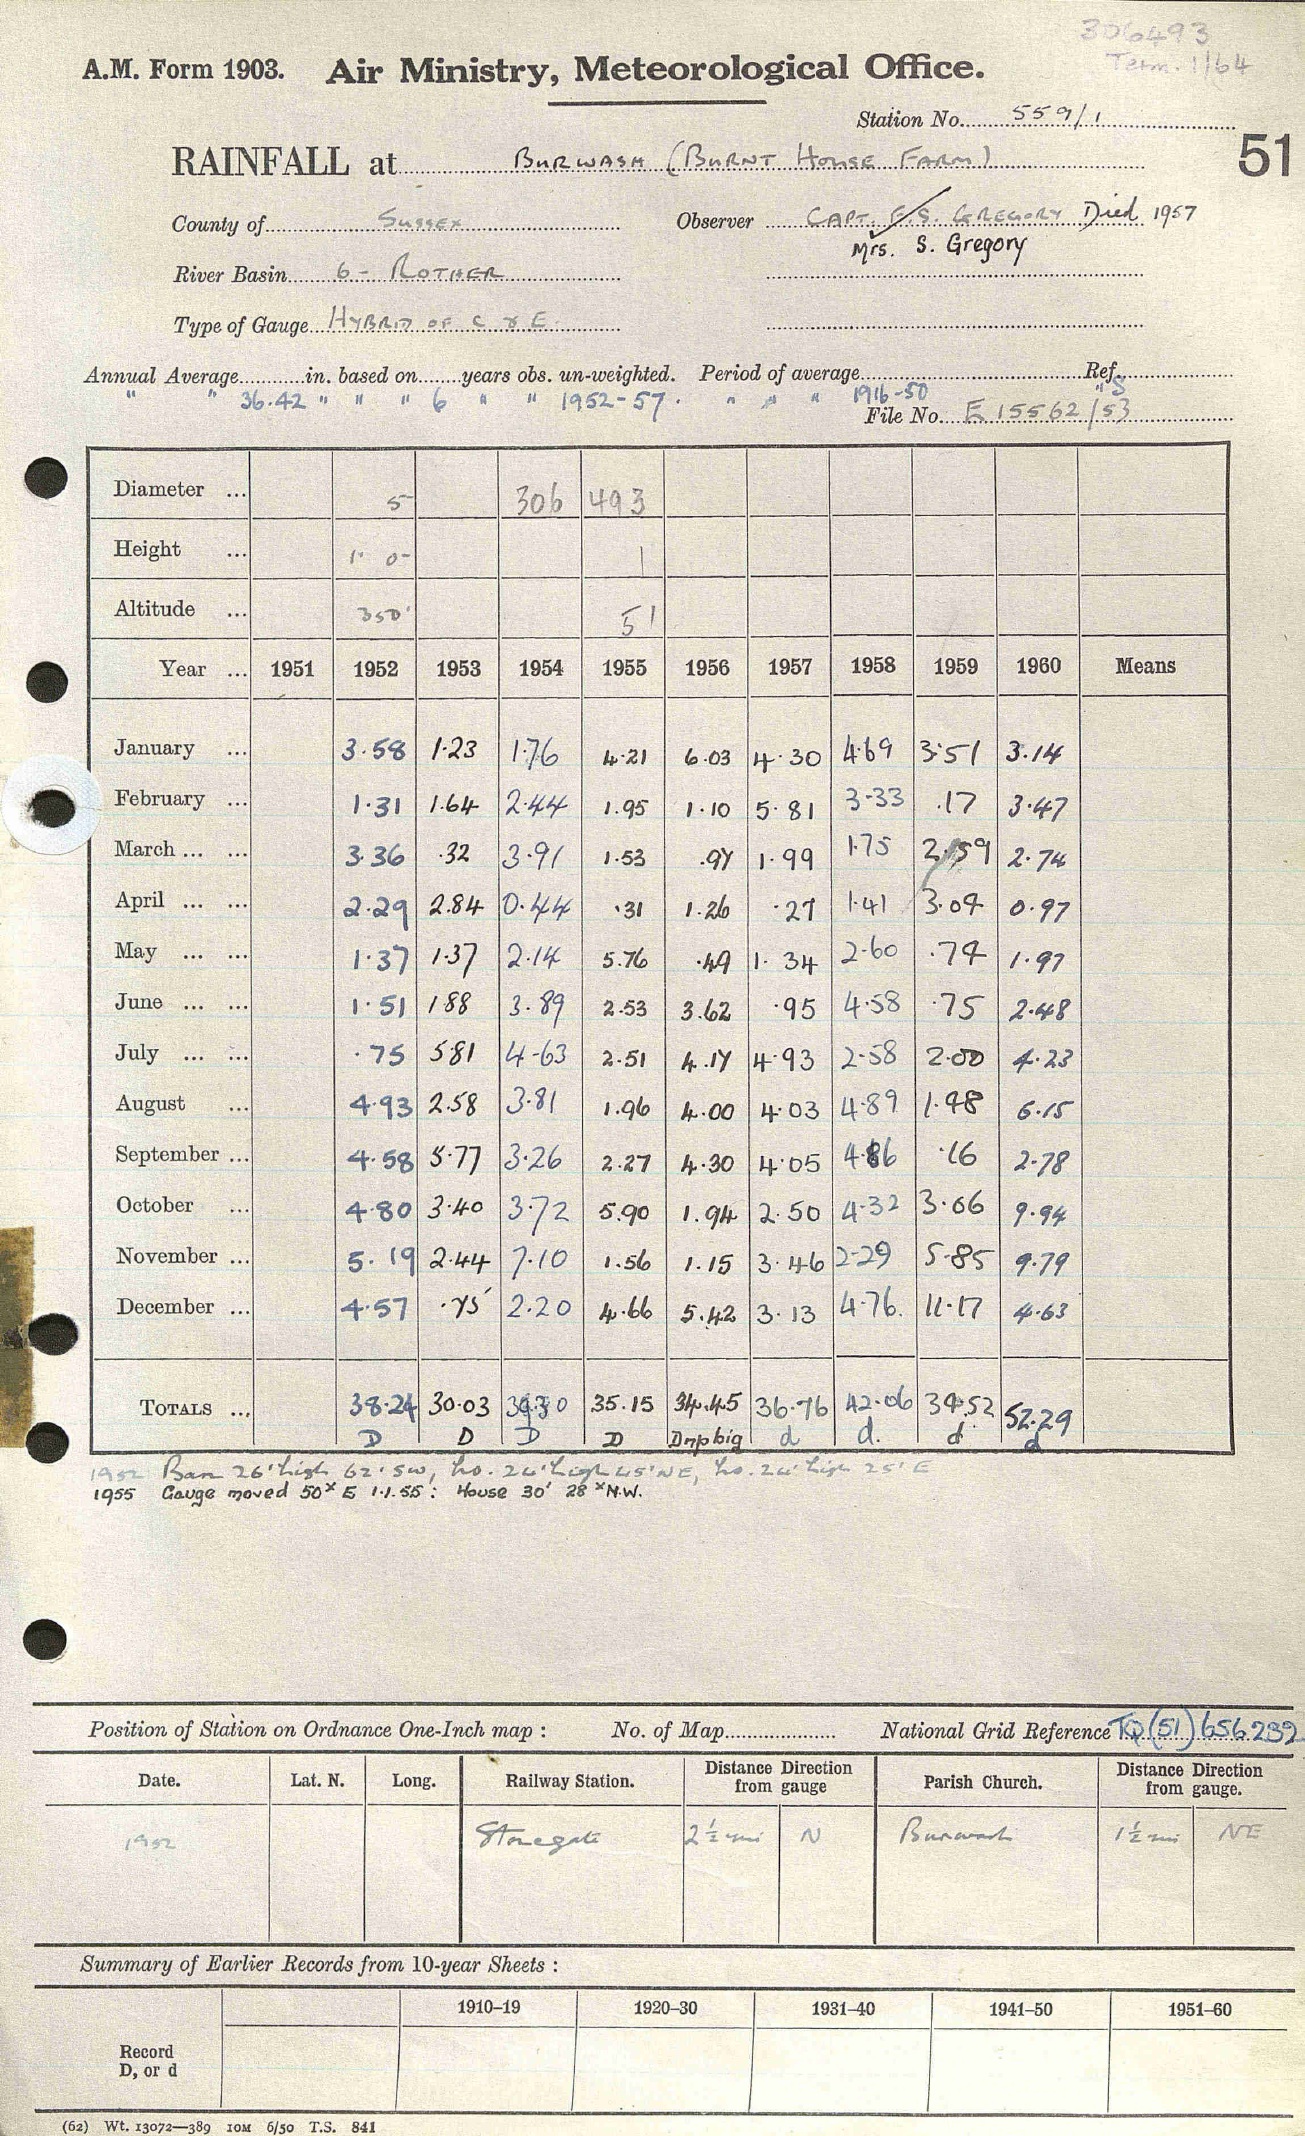 306493
Term. 1/64
A.M. Form 1903. Air Ministry, Meteorological Office.
Station No. 559/1
51
RAINFALL at BURWASH (BURNT HOUSE FARM)
County of SUSSEX Observer CAPT. E.S. GREGORY Died 1957
Mrs. S. Gregory
River Basin 6 - ROTHER
Type of Gauge HYBRID OF C & E
Annual Average in. based on years obs. un-weighted. Period of average Ref.
" " 36.42 " " " 6 " " 1952-57. " " " 1916-50 "S
File No. E 15562/53
Diameter ... 5 306 493
Height ... 1' 0" 1
Altitude ... 350' 51
Year ... 1951 1952 1953 1954 1955 1956 1957 1958 1959 1960 Means
January ... 3.58 1.23 1.76 4.21 6.03 4.30 4.69 3.51 3.14
February ... 1.31 1.64 2.44 1.95 1.10 5.81 3.33 .17 3.47
March ... ... 3.36 .32 3.91 1.53 .97 1.99 1.75 2.59 2.74
April ... ... 2.29 2.84 0.44 .31 1.26 .27 1.41 3.04 0.97
May ... ... 1.37 1.37 2.14 5.76 .49 1.34 2.60 .74 1.97
June ... ... 1.51 1.88 3.89 2.53 3.62 .95 4.58 .75 2.48
July ... ... .75 5.81 4.63 2.51 4.17 4.93 2.58 2.00 4.23
August ... 4.93 2.58 3.81 1.96 4.00 4.03 4.89 1.48 6.15
September ... 4.58 5.77 3.26 2.27 4.30 4.05 4.86 .16 2.78
October ... 4.80 3.40 3.72 5.90 1.94 2.50 4.32 3.06 9.94
November ... 5.19 2.44 7.10 1.56 1.15 3.46 2.29 5.85 9.79
December ... 4.57 .75 2.20 4.66 5.42 3.13 4.76. 11.17 4.63
TOTALS ... 38.24 30.03 39.30 35.15 34.45 36.76 42.06 34.52 52.29
D D D D Dnpbig d d. d d
1952 Barn 26' high 62' SW, ho. 24' high 45' NE, ho. 24' high 25' E
1955 Gauge moved 50ˣ E 1.1.55: House 30' 28ˣ N.W.
Position of Station on Ordnance One-Inch map : No. of Map National Grid Reference TQ (51) 656 239
Date. Lat. N. Long. Railway Station. Distance Direction from gauge Parish Church. Distance Direction from gauge.
1952 Stonegate 2½ mi N Burwash 1½ mi NE
Summary of Earlier Records from 10-year Sheets :
1910–19 1920–30 1931–40 1941–50 1951–60
Record
D, or d
(62) Wt. 13072—389 10M 6/50 T.S. 841